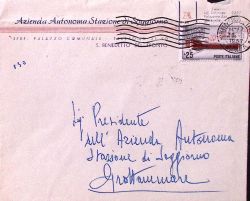 Azienda Autonoma Stazione di Soggiorno
SEDE PALAZZO COMUNALE
S. BENEDETTO DEL TRONTO
£25 POSTE ITALIANE
Sig. Presidente
dell'Azienda Autonoma
Stazione di Soggiorno
Grottammare